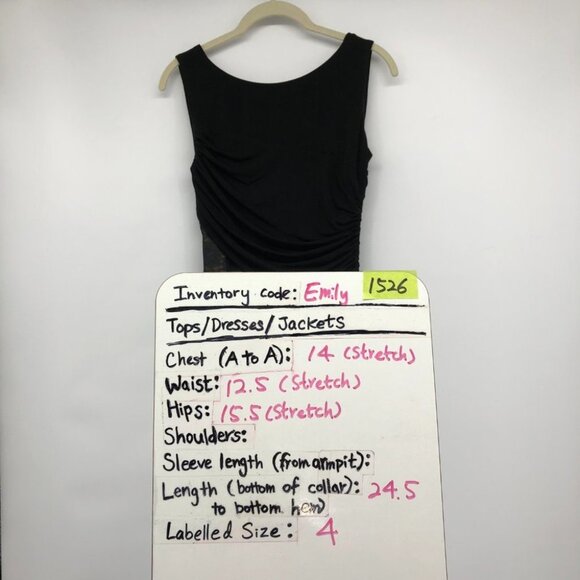 Inventory code: Emily 1526
Tops/Dresses/Jackets
Chest (A to A): 14 (stretch)
Waist: 12.5 (Stretch)
Hips: 15.5 (Stretch)
Shoulders:
Sleeve length (from armpit):
Length (bottom of collar): 24.5
to bottom hem)
Labelled Size: 4